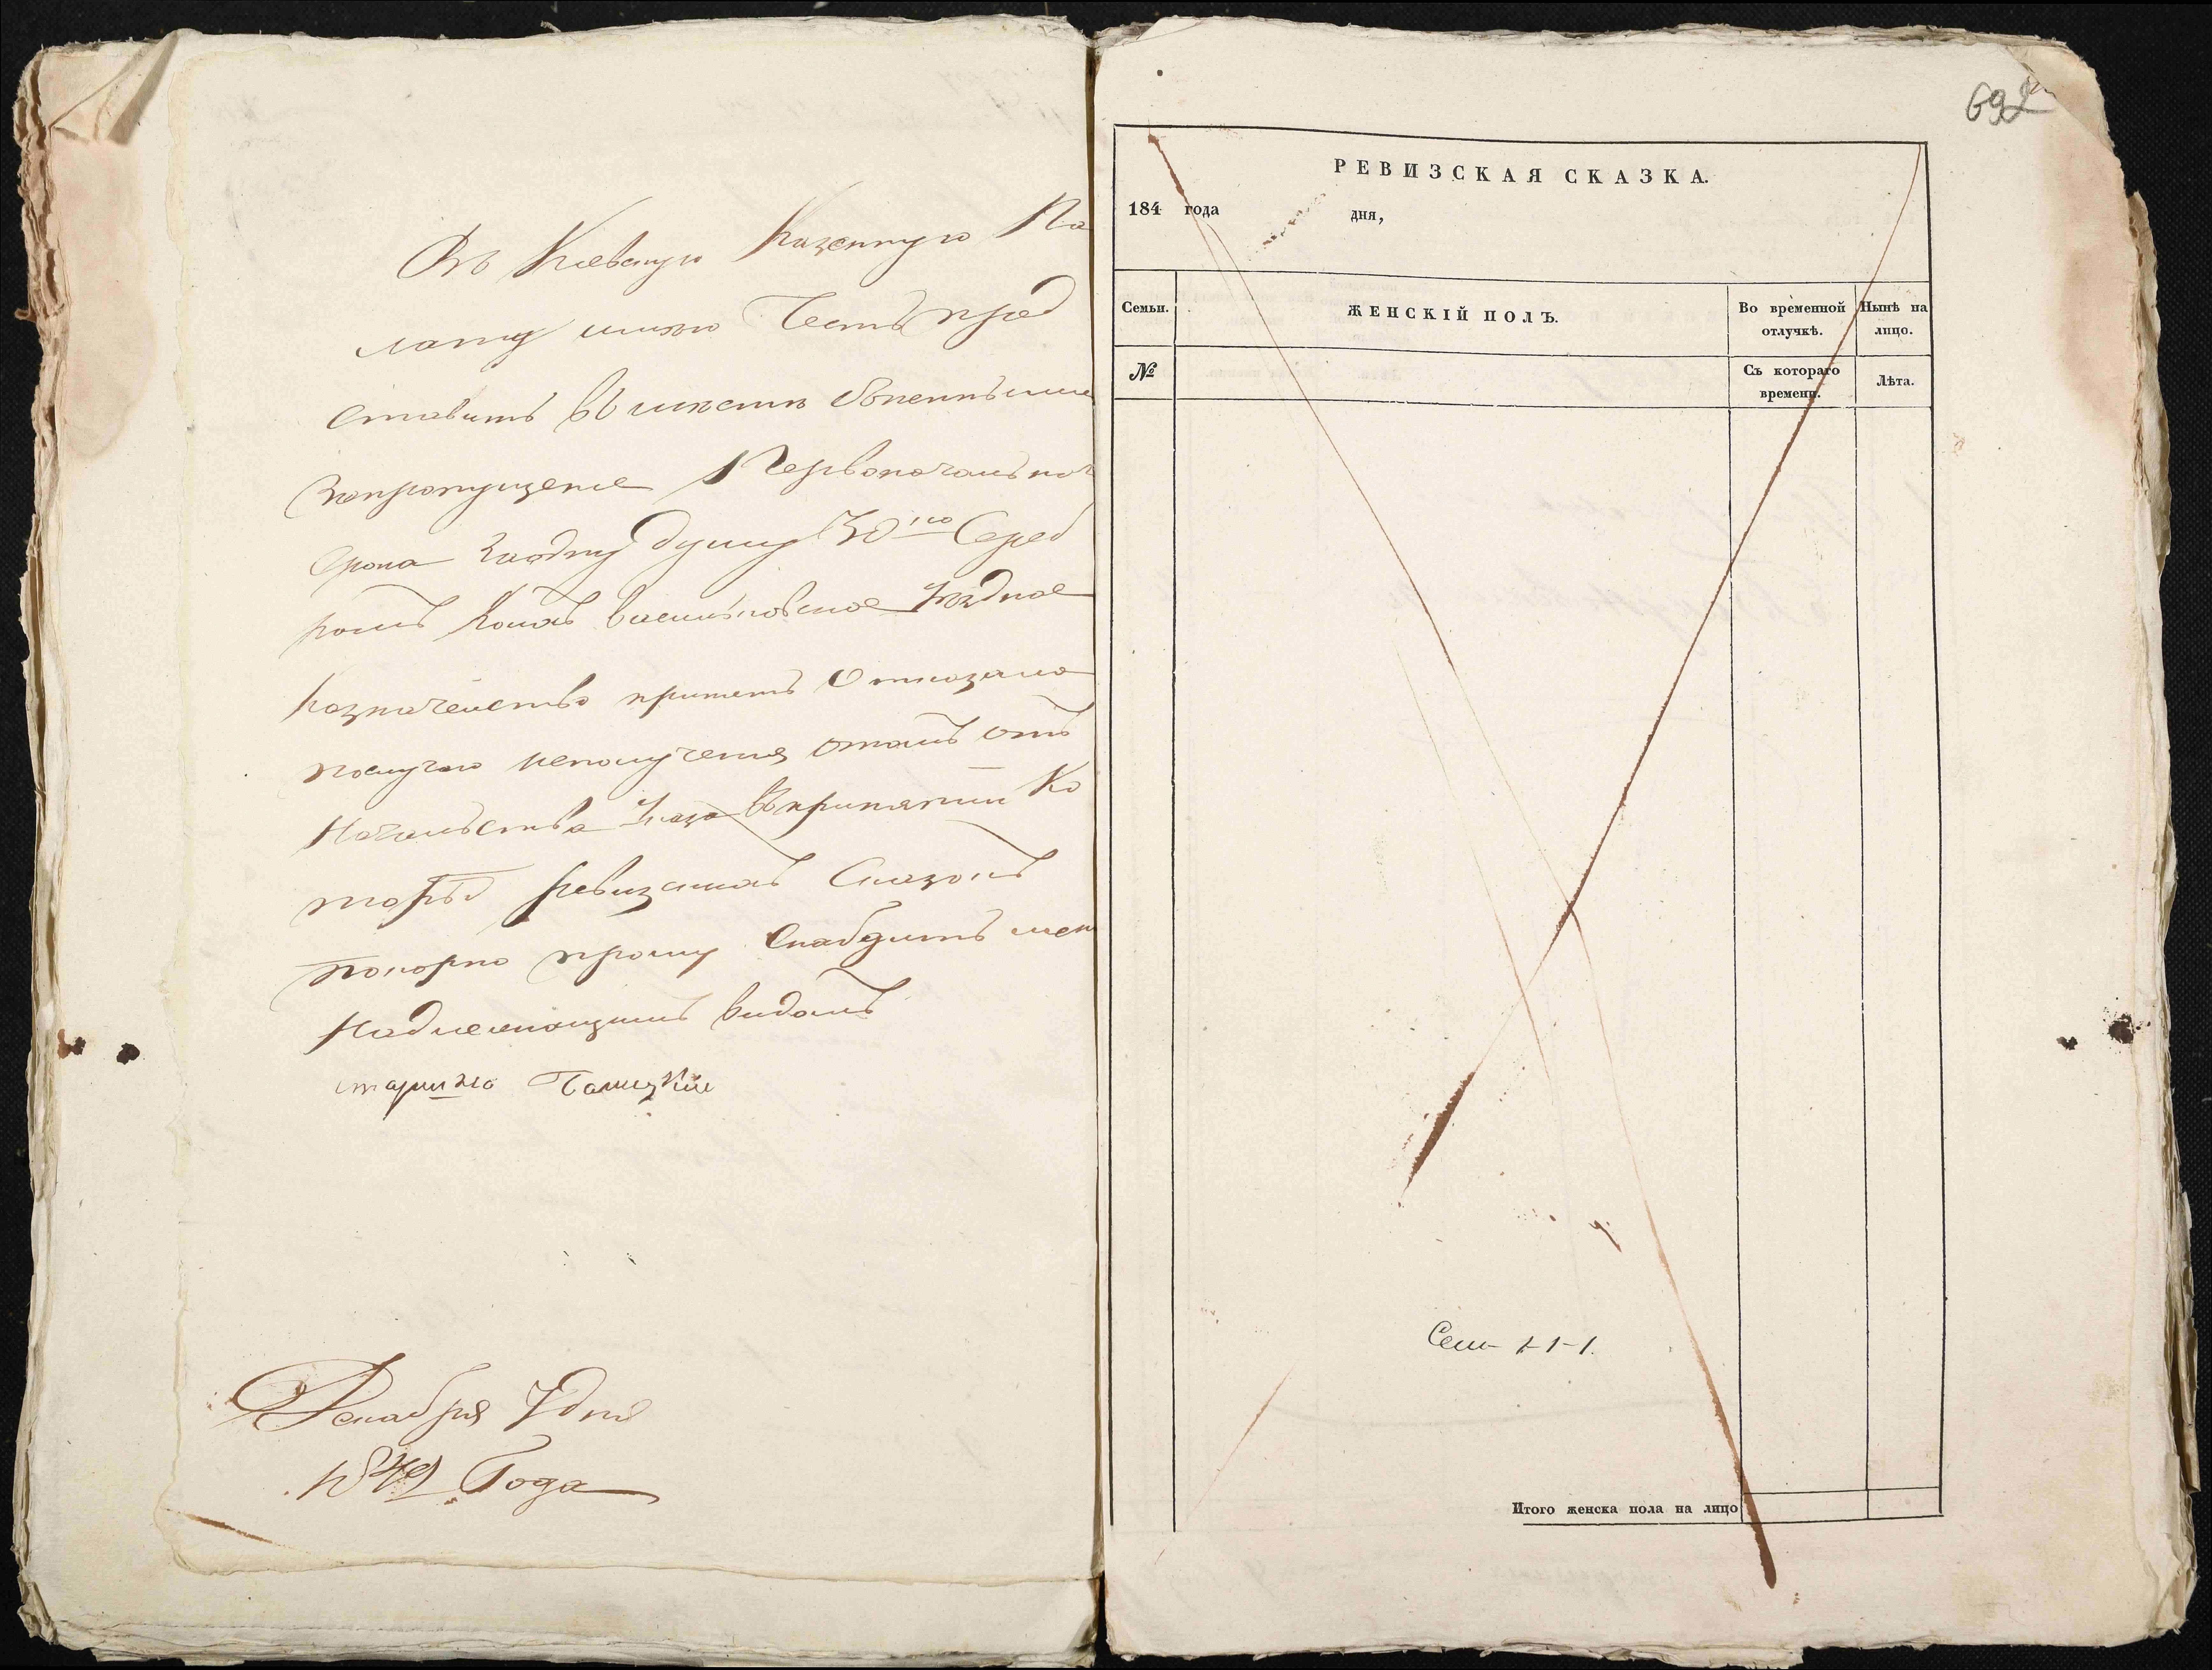 Въ Киевскую Казенную Па
лату имѣю Честь пред
ставить
запропущение Первоначальнаг
Срока Заодну душу 30 Сереб
ромъ Какъ васильковское Уездное
Казначейство принять Отказало
послучаю неполучения отомъ отъ
Начальства Указа впринятии Ко
торыхъ ревизскихъ Сказокъ
покорно прошу Снабдить мен
Надлежащимъ видомъ
Декабря 7 дня
1849 Года
692
РЕВИЗСКАЯ СКАЗКА.
184 года дня,
Семьи. ЖЕНСКІЙ ПОЛЪ. Во временной отлучкѣ. Нынѣ на лицо.
№ Съ котораго времени. Лѣта.
Сем 1-1-1.
Итого женска пола на лицо